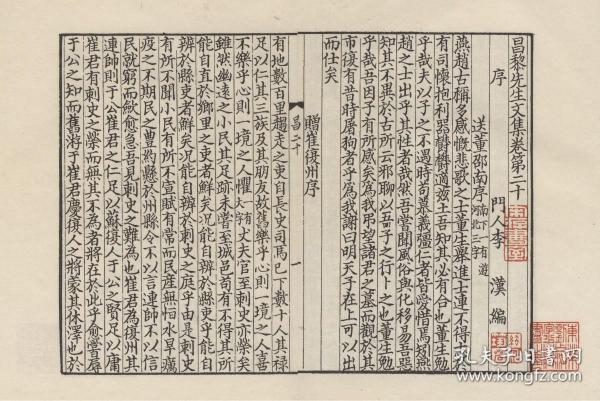 昌黎先生文集卷第二十
門人李 漢 編
序
送董邵南序
燕趙古稱多感慨悲歌之士董生舉進士連不得志於
有司懷抱利器鬱鬱適茲土吾知其必有合也董生勉
乎哉夫以子之不遇時苟慕義彊仁者皆愛惜焉矧燕
趙之士出乎其性者哉然吾嘗聞風俗與化移易吾惡
知其今不異於古所云邪聊以吾子之行卜之也董生勉
乎哉吾因子有所感矣為我弔望諸君之墓而觀於其
市復有昔時屠狗者乎為我謝曰明天子在上可以出
而仕矣
贈崔復州序
昌二十
一
有地數百里趨走之吏自長史司馬已下數十人其祿
足以仁其三族及其朋友故舊樂乎心則一境之人喜
不樂乎心則一境之人懼丈夫官至刺史亦榮矣
雖然幽遠之小民其足跡未嘗至城邑苟有不得其所
能自直於鄉里之吏者鮮矣況能自辨於縣吏乎能自
辨於縣吏者鮮矣況能自辨於刺史之庭乎由是刺史
有所不聞小民有所不宣賦有常而民產無恒水旱癘
疫之不期民之豐約懸於州縣令不以言連帥不以信
民就窮而斂愈急吾見刺史之難為也崔君為復州其
連帥則于公崔君之仁足以蘇復人于公之賢足以庸
崔君有刺史之榮而無其不為者將在於此乎愈嘗辱
于公之知而舊游于崔君慶復人之將蒙其休澤也於
孔夫子旧书网
www.kongfz.com